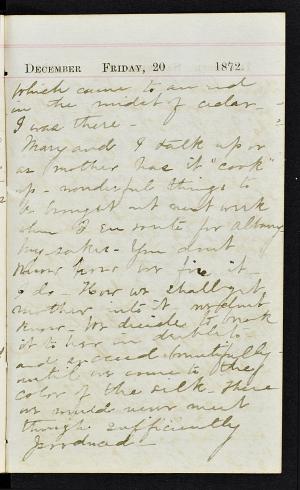 DECEMBER FRIDAY, 20 1872.
which came to an end
in the midst of cedar -
I was there -
Mary and I talk up or
as mother has it "cook"
up - wonderful things to
be brought out next week
when I en route for Albany
my sake - You don't
know how we fix it -
I do - How we shall get
mother into it we don't
know - We decide to break
it to her in
and succeed beautifully -
until we come to the
color of the silk - Here
we would never meet
though sufficiently
produced -